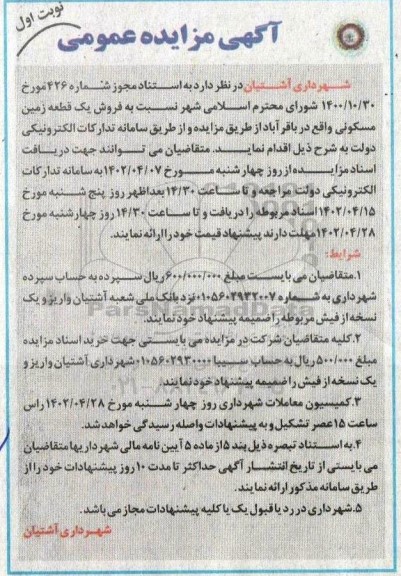 نوبت اول
آگهی مزایده عمومی
شهرداری آشتیان در نظر دارد به استناد مجوز شماره ۴۲۶ مورخ
۱۴۰۰/۱۰/۳۰ شورای محترم اسلامی شهر نسبت به فروش یک قطعه زمین
مسکونی واقع در باقرآباد از طریق مزایده و از طریق سامانه تدارکات الکترونیکی
دولت به شرح ذیل اقدام نماید. متقاضیان می توانند جهت دریافت
اسناد مزایده از روز چهارشنبه مورخ ۱۴۰۲/۰۴/۰۷ به سامانه تدارکات
الکترونیکی دولت مراجعه و تا ساعت ۱۴/۳۰ بعداظهر روز پنج شنبه مورخ
۱۴۰۲/۰۴/۱۵ اسناد مربوطه را دریافت و تا ساعت ۱۴/۳۰ روز چهارشنبه مورخ
۱۴۰۲/۰۴/۲۸ مهلت دارند پیشنهاد قیمت خود را ارائه نمایند.
شرایط:
۱.متقاضیان می بایست مبلغ ۶۰۰/۰۰۰/۰۰۰ ریال سپرده به حساب سپرده
شهرداری به شماره ۰۱۰۵۶۰۲۹۳۲۰۰۷ نزد بانک ملی شعبه آشتیان واریز و یک
نسخه از فیش مربوطه را ضمیمه پیشنهاد خود نمایند.
۲.کلیه متقاضیان شرکت در مزایده می بایستی جهت خرید اسناد مزایده
مبلغ ۵۰۰/۰۰۰ ریال به حساب سیبا ۰۱۰۵۶۰۲۹۳۰۰۰۰ شهرداری آشتیان واریز و
یک نسخه از فیش را ضمیمه پیشنهاد خود نمایند
۳.کمیسیون معاملات شهرداری روز چهارشنبه مورخ ۱۴۰۲/۰۴/۲۸ راس
ساعت ۱۵ عصر تشکیل و به پیشنهادات واصله رسیدگی خواهد شد.
۴.به استناد تبصره ذیل بند ۵ از ماده ۵ آیین نامه مالی شهرداریها متقاضیان
می بایستی از تاریخ انتشار آگهی حداکثر تا مدت ۱۰ روز پیشنهادات خود را از
طریق سامانه مذکور ارائه نمایند.
۵.شهرداری در رد یا قبول یک یا کلیه پیشنهادات مجاز می باشد.
شهرداری آشتیان